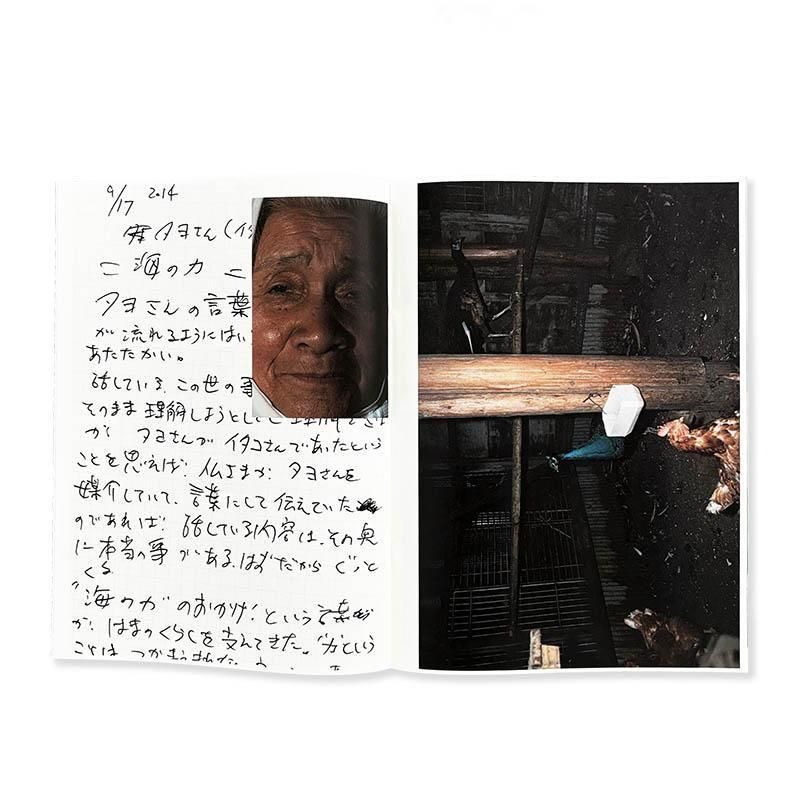 9/17 2014
タヨさん(イタ
海の力
タヨさんの言葉
が流れるようにはい
あたたかい。
話している、この世の事
そのまま理解しようとし
が タヨさんが イタコさんであったという
ことを思えば、仏さまが タヨさんを
媒介していて、言葉にして伝えていた
のであれば、話している内容は、その奥
に本当の事がある、はずだから ぐっと
くる
"海の力"のおかげ!という言葉
が、はまのくらしを支えてきた。"力という
ことは